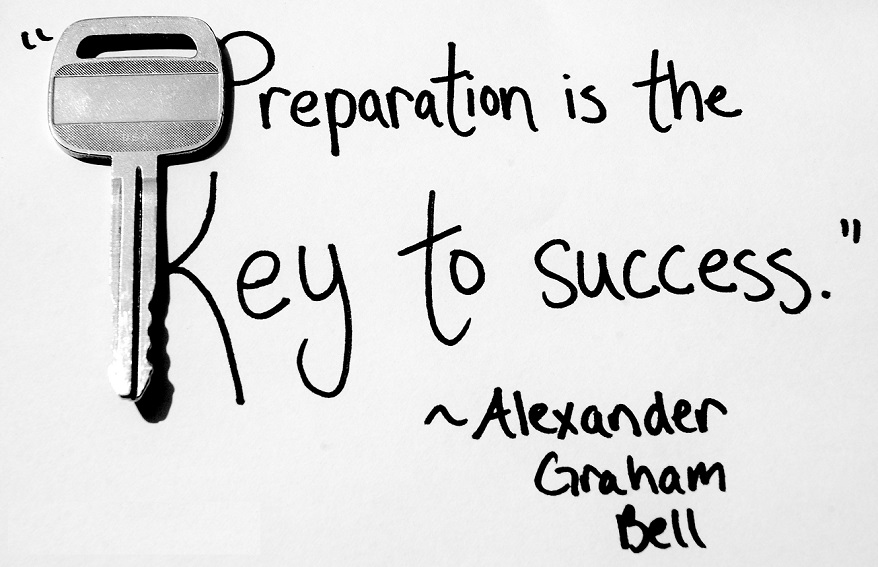 "Preparation is the
Key to success."
~Alexander
Graham
Bell